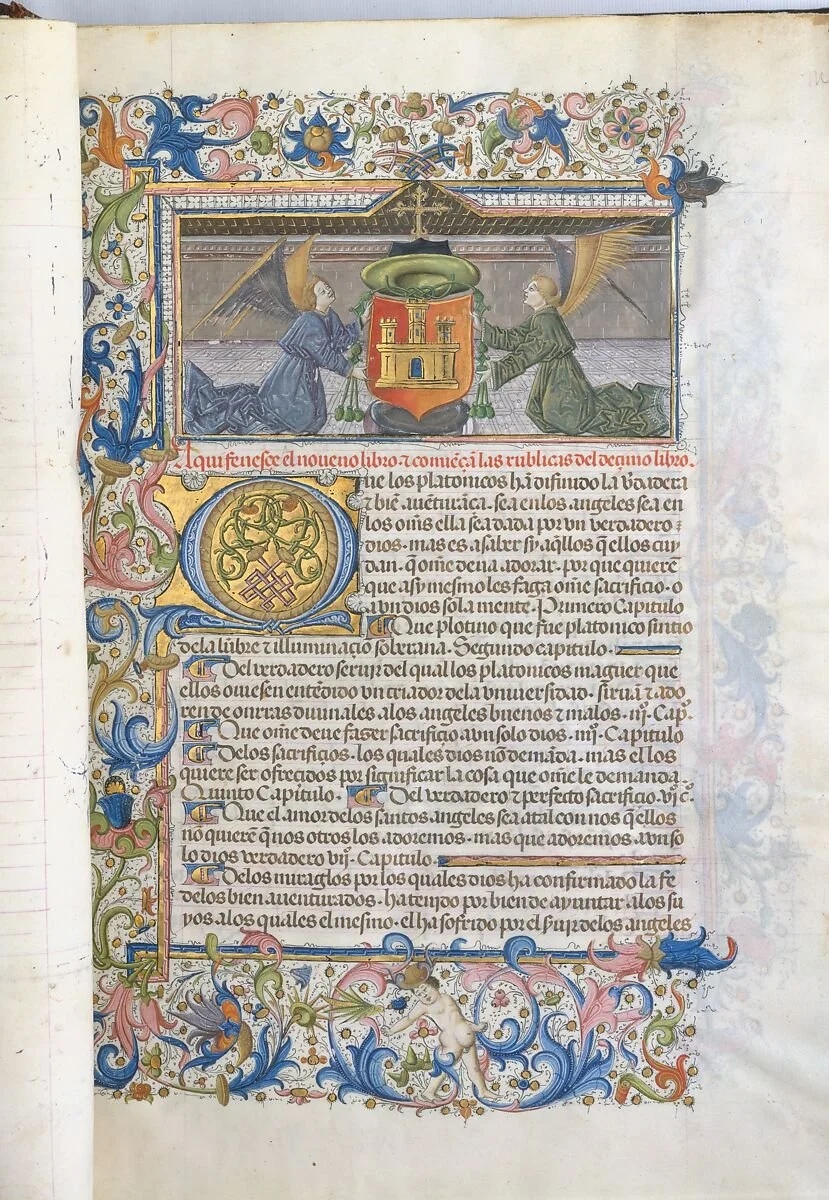 Aqui fenesce el noueno libro ⁊ comiẽçã las rublicas del deçimo libro.
Que los platonicos hã difinido la v̉dadera
⁊ biẽ auẽturãca. sea en los angeles sea en
los om̃s ella sea dada por vn verdadero
dios. mas es a saber sy aq̃llos q̃ ellos cuy
dan. q̃ om̃e deua adorar. por que quierẽ
que asy mesmo les faga om̃e sacrificio. o
a vn dios sola mente. Primero Capitulo
Que plotino que fue platonico sintio
de la lũbre ⁊ illuminaçio soberana. Segundo capitulo.
Del verdadero seruir del qual los platonicos maguer que
ellos ouiesen entẽdido vn criador de la vniuersidad. siruã ⁊ ado
ren de onrras diuinales a los angeles buenos ⁊ malos. iij. Cap̃.
Que om̃e deue faser sacrificio a vn solo dios. iiij. Capitulo
De los sacrificios. los quales dios nõ demãda. mas el los
quiere ser ofrecidos por significar la cosa que om̃e le demanda.
Quinto Capitulo. Del verdadero ⁊ perfecto sacrificio. vj. c̃.
Que el amor de los santos angeles sea atal con nos q̃ ellos
nõ quierẽ q̃ nos otros los adoremos. mas que adoremos a vn so
lo dios verdadero vij. Capitulo.
De los miraglos por los quales dios ha confirmado la fe
de los bien auenturados. ha tenido por bien de ayuntar a los su
yos a los quales el mesmo. el ha sofrido por el s̃uir de los angeles